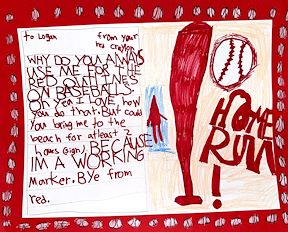 to Logan from your
red crayon
WHY DO YOU ALWAYS
USE ME FOR THE
RED OUTLINES
ON BASEBALLS
Oh yea I LOVE how
you do that. But could
you bring me to the
beach for atleast 2
hours (sigh) BECAUSE
IM A WORKING
Marker. Bye from
red.
HOME
RUN
!